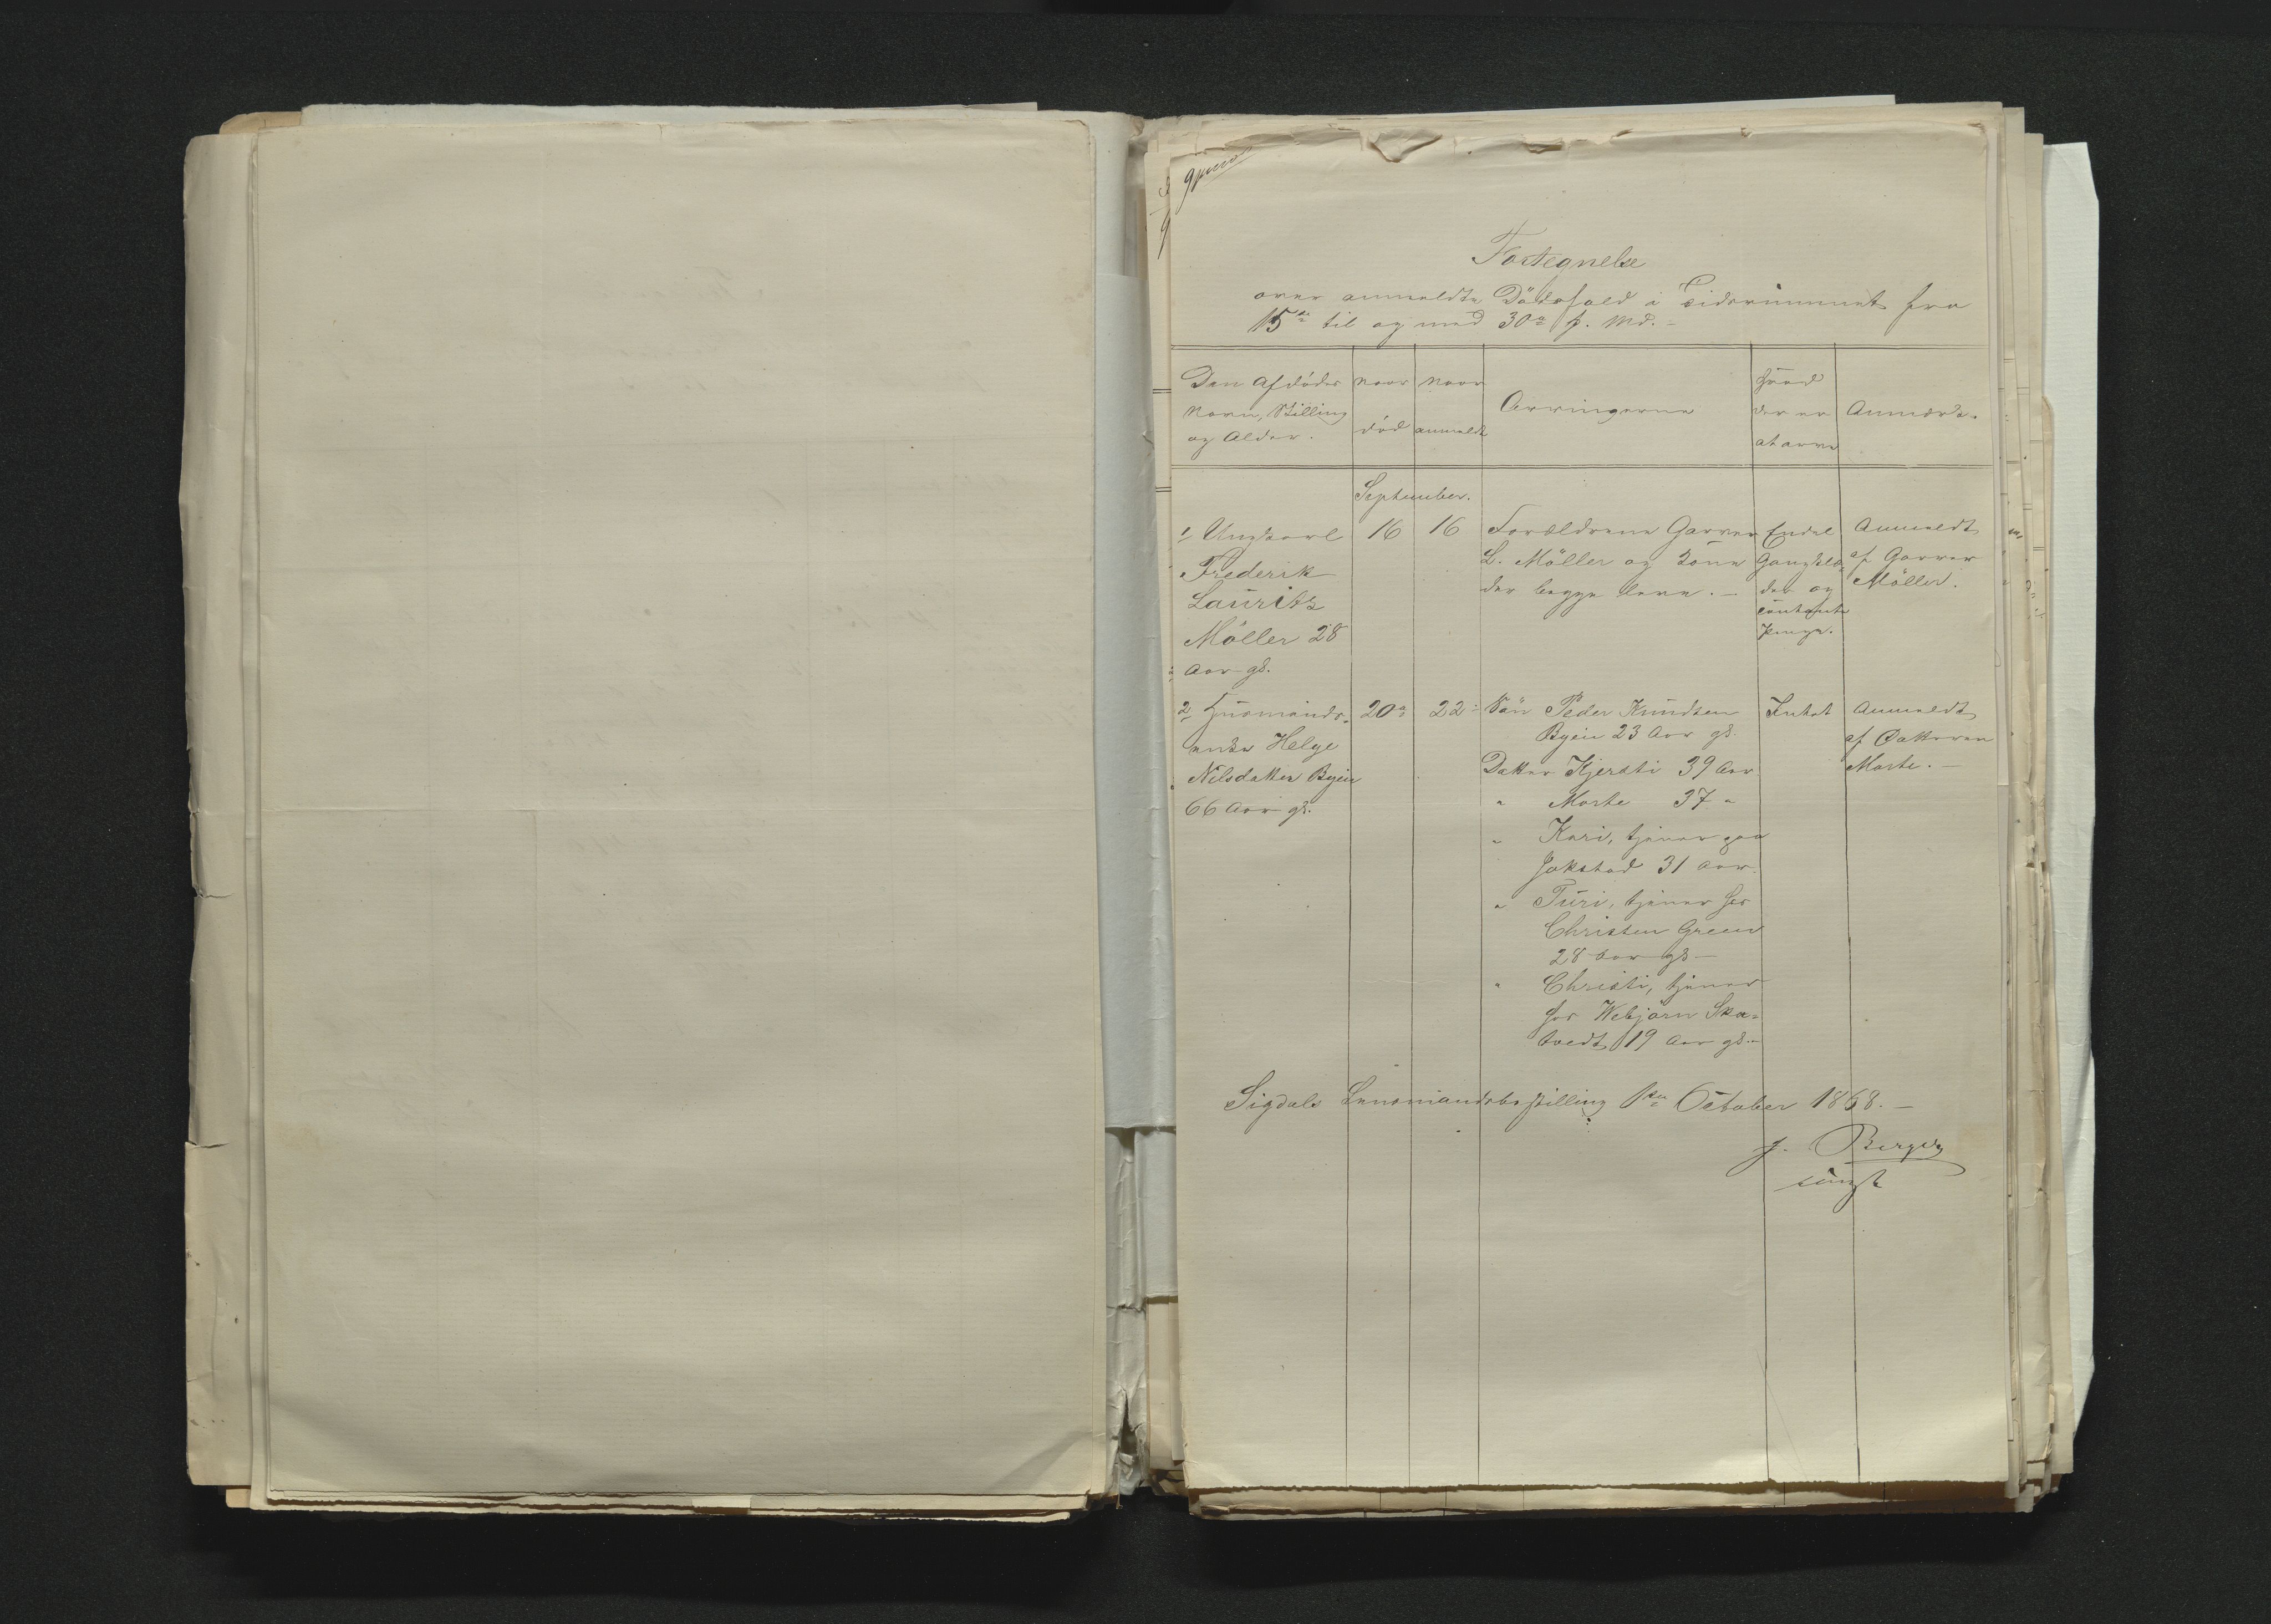 Fortegnelse
over anmeldte Dödsfald i Tidsrummet fra
15de til og med 30te f. Md. –
Den Afdödes Navn, Stilling og Alder.
Naar död
Naar anmeldt
Arvingerne
Hvad der er at arve
Anmærkn.
September.
1 Ungkarl
Frederik
Lauritz
Möller 28
Aar gl.
16
16
Forældrene Garver
L. Möller og Kone
der begge leve. –
Endel
Gangklæ-
der og
contante
Penge.
Anmeldt
af Garver
Möller.
2 Huusmands-
enke Helge
Nilsdatter Byein
66 Aar gl.
20de
22
Sön Peder Knudsen
Byein 23 Aar gl.
Datter Kjersti 39 Aar
" Marte 37 "
" Kari, tjener paa
Jokstad 31 Aar.
" Turi, tjener hos
Christen Green
28 Aar gl –
" Christi, tjener
hos Webjörn Ska-
tvedt 19 Aar gl. –
Intet
Anmeldt
af Datteren
Marte. –
Sigdals Lensmandsbestilling 1ste October 1868. –
J. Berger
const